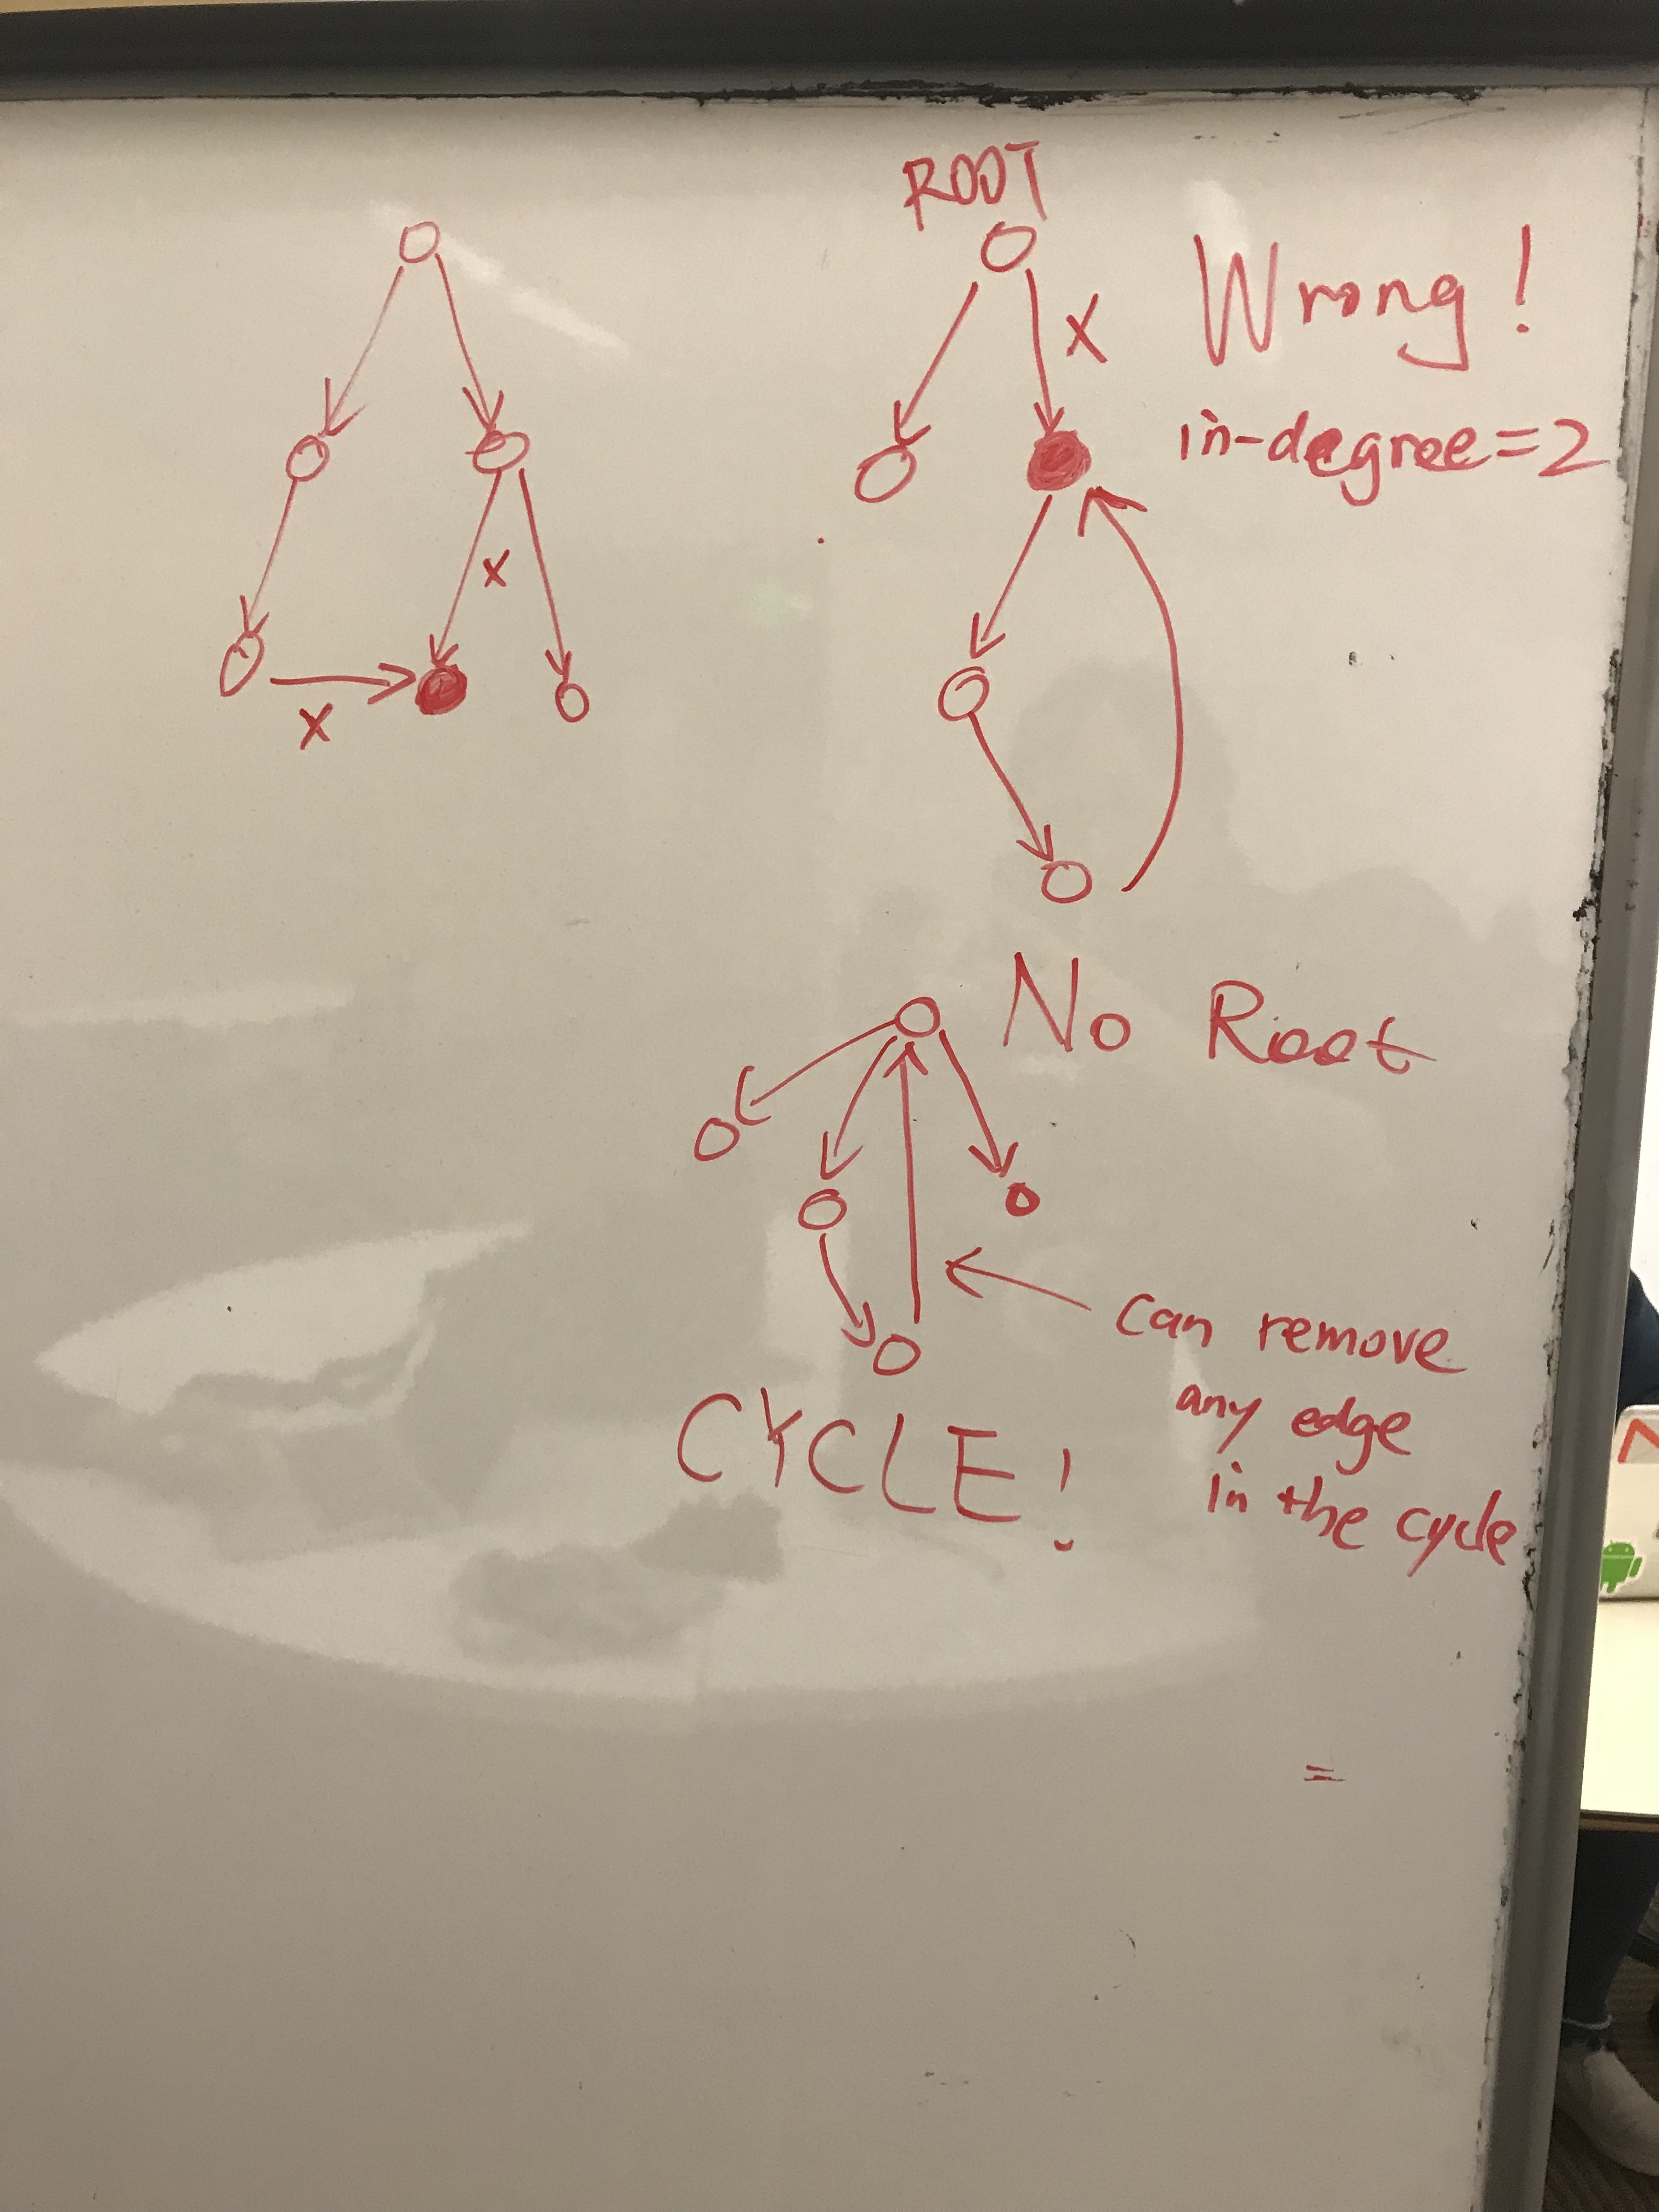 ROOT
X
Wrong!
in-degree=2
X
X
No Root
can remove
any edge
in the cycle
CYCLE!
=